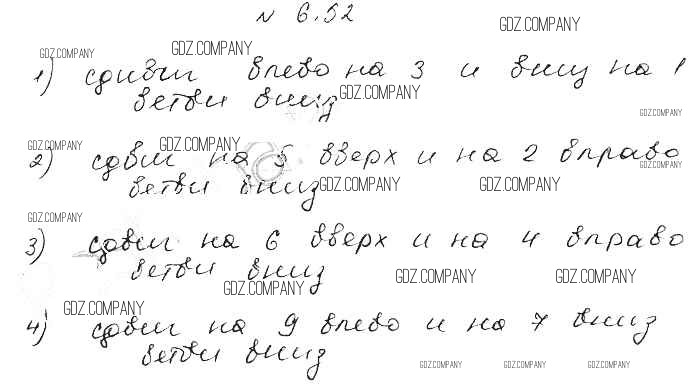 N 6.52
GDZ.COMPANY
GDZ.COMPANY
GDZ.COMPANY
1) сдвиг влево на 3 и вниз на 1
GDZ.COMPANY
ветви вниз
GDZ.COMPANY
GDZ.COMPANY
GDZ.COMPANY
2) сдвиг на 5 вверх и на 2 вправо
GDZ.COMPANY
ветви вниз
GDZ.COMPANY
GDZ.COMPANY
GDZ.COMPANY
3) сдвиг на 6 вверх и на 4 вправо
ветви вниз
GDZ.COMPANY
GDZ.COMPANY
GDZ.COMPANY
GDZ.COMPANY
4) сдвиг на 9 влево и на 7 вниз
ветви вниз
GDZ.COMPANY
GDZ.COMPANY
GDZ.COMPANY